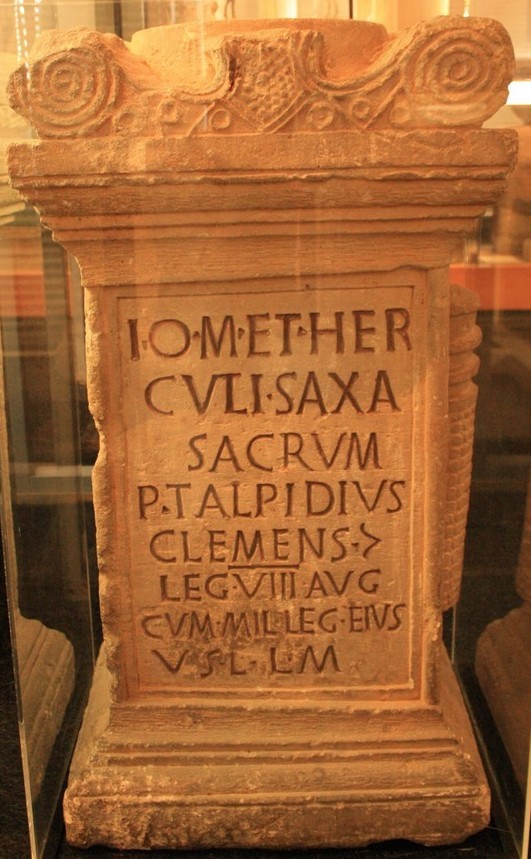 I·O·M·ET·HER
CVLI·SAXA
SACRVM
P·TALPIDIVS
CLEMENS·>
LEG·VIII·AVG
CVM·MIL·LEG·EIVS
V·S·L·L·M